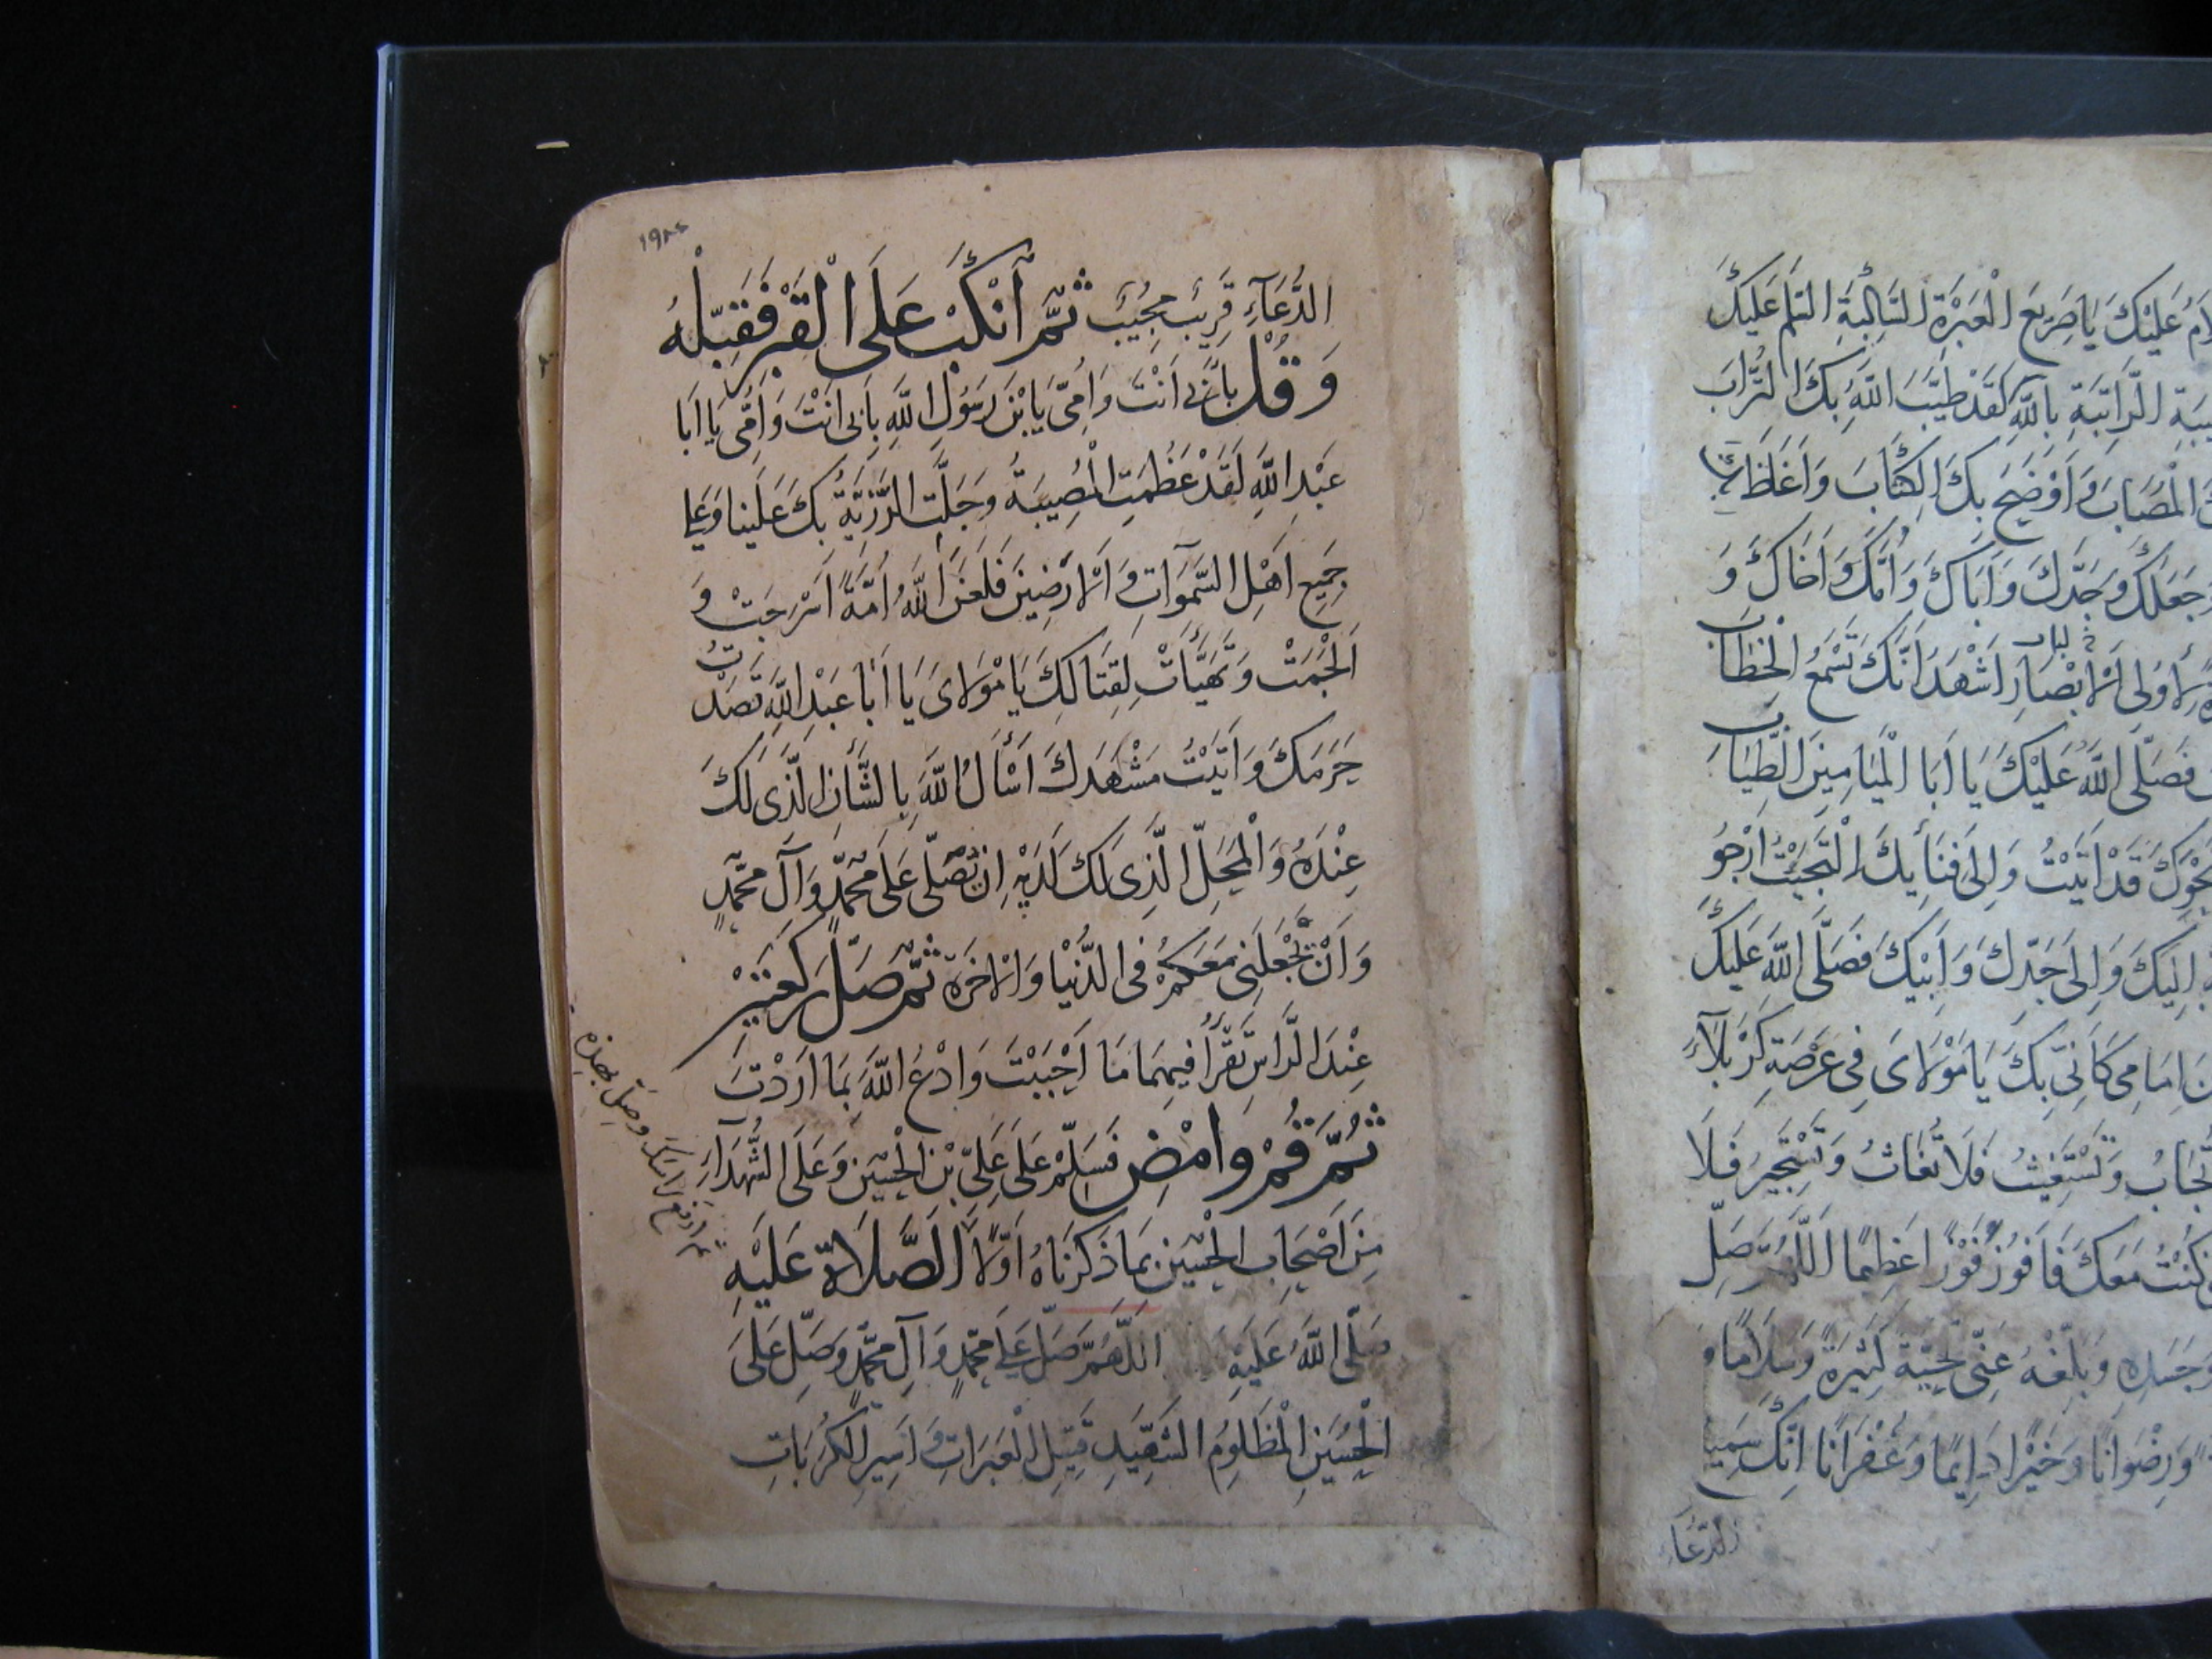 لَامُ عَلَيْكَ يَا صَرِيعَ الْعَبْرَةِ السَّاكِبَةِ السَّلَامُ عَلَيْكَ
بِاللّٰهِ لَقَدْ طَيَّبَ اللّٰهُ بِكَ التُّرَابَ
الْمُصَابَ وَ اَوْضَحَ بِكَ الْكِتَابَ وَ
جَعَلَكَ وَ جَدَّكَ وَ اَبَاكَ وَ اُمَّكَ وَ اَخَاكَ وَ
لِأُولِى الْاَبْصَارِ اَشْهَدُ اَنَّكَ تَسْمَعُ الْخِطَابَ
فَصَلَّى اللّٰهُ عَلَيْكَ يَا اَبَا الْمَيَامِينَ الطِّيَابَ
نَحْوَكَ قَدْ اَتَيْتُ وَ اِلَى فِنَائِكَ الْتَجَيْتُ اَرْجُو
اِلَيْكَ وَ اِلَى جَدِّكَ وَ اَبِيكَ فَصَلَّى اللّٰهُ عَلَيْكَ
اِمَامِى كَاَنِّى بِكَ يَا مَوْلَاىَ فِى عَرْصَةِ كَرْبَلَاءَ
تُجَابُ وَ تَسْتَغِيثُ فَلَا تُغَاثُ وَ تَسْتَجِيرُ فَلَا
كُنْتُ مَعَكَ فَاَفُوزَ فَوْزًا عَظِيمًا اَللّٰهُمَّ صَلِّ
وَ جَسَدِهِ وَ بَلِّغْهُ عَنِّى تَحِيَّةً كَثِيرَةً وَ سَلَامًا وَ
وَ رِضْوَانًا وَ خَيْرًا دَايِمًا وَ غُفْرَانًا اِنَّكَ سَمِيعُ
الدُّعَآءِ
الدُّعَآءِ قَرِيبٌ مُجِيبٌ ثُمَّ انْكَبْ عَلَى الْقَبْرِ فَقَبِّلْهُ
وَ قُلْ بِاَبِى اَنْتَ وَ اُمِّى يَا بْنَ رَسُولِ اللّٰهِ بِاَبِى اَنْتَ وَ اُمِّى يَا اَبَا
عَبْدِ اللّٰهِ لَقَدْ عَظُمَتِ الْمُصِيبَةُ وَ جَلَّتِ الرَّزِيَّةُ بِكَ عَلَيْنَا وَ عَلَى
جَمِيعِ اَهْلِ السَّمٰوَاتِ وَ الْاَرَضِينَ فَلَعَنَ اللّٰهُ اُمَّةً اَسْرَجَتْ وَ
اَلْجَمَتْ وَ تَهَيَّأَتْ لِقِتَالِكَ يَا مَوْلَاىَ يَا اَبَا عَبْدِ اللّٰهِ قَصَدْتُ
حَرَمَكَ وَ اَتَيْتُ مَشْهَدَكَ اَسْأَلُ اللّٰهَ بِالشَّأْنِ الَّذِى لَكَ
عِنْدَهُ وَ الْمَحَلِّ الَّذِى لَكَ لَدَيْهِ اَنْ تُصَلِّىَ عَلَى مُحَمَّدٍ وَ آلِ مُحَمَّدٍ
وَ اَنْ تَجْعَلَنِى مَعَكُمْ فِى الدُّنْيَا وَ الْاٰخِرَةِ ثُمَّ صَلِّ رَكْعَتَيْنِ
عِنْدَ الرَّاسِ تَقْرَأُ فِيهِمَا مَا اَحْبَبْتَ وَ ادْعُ اللّٰهَ بِمَا اَرَدْتَ
ثُمَّ قُمْ وَ امْضِ فَسَلِّمْ عَلَى عَلِىِّ بْنِ الْحُسَيْنِ وَ عَلَى الشُّهَدَاءِ
ثم ارفع راسك وصل بهذه
مِنْ اَصْحَابِ الْحُسَيْنِ بِمَا ذَكَرْنَاهُ اَوَّلًا الصَّلَاةُ عَلَيْهِ
صَلَّى اللّٰهُ عَلَيْهِ اَللّٰهُمَّ صَلِّ عَلَى مُحَمَّدٍ وَ آلِ مُحَمَّدٍ وَ صَلِّ عَلَى
الْحُسَيْنِ الْمَظْلُومِ الشَّهِيدِ قَتِيلِ الْعَبَرَاتِ وَ اَسِيرِ الْكُرُبَاتِ